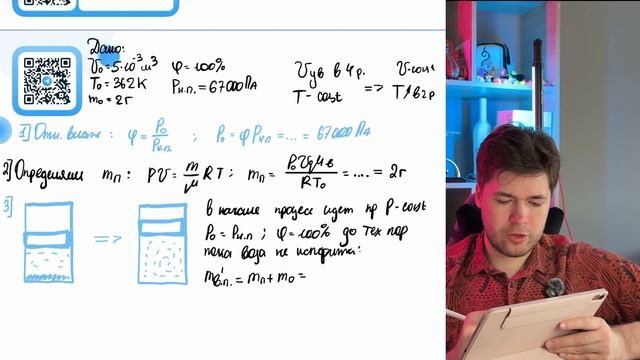 Дано:
V₀ = 5·10⁻³ м³ φ = 100%
T₀ = 362 К Pн.п. = 67000 Па
m₀ = 2 г
V ув в 4 р. V-const
T-const => T↑ в 2 р
1] Отн. влаж: φ = P₀/Pн.п. ; P₀ = φ Pн.п = ... = 67000 Па
2] Определим mп : PV = m/μ RT ; mп = P₀V₀μв/RT₀ = .... = 2 г
3] в начале процесс идет пр P-const
=> P₀ = Pн.п ; φ = 100% до тех пор
пока вода не испарится:
mв.п. = mп + m₀ =